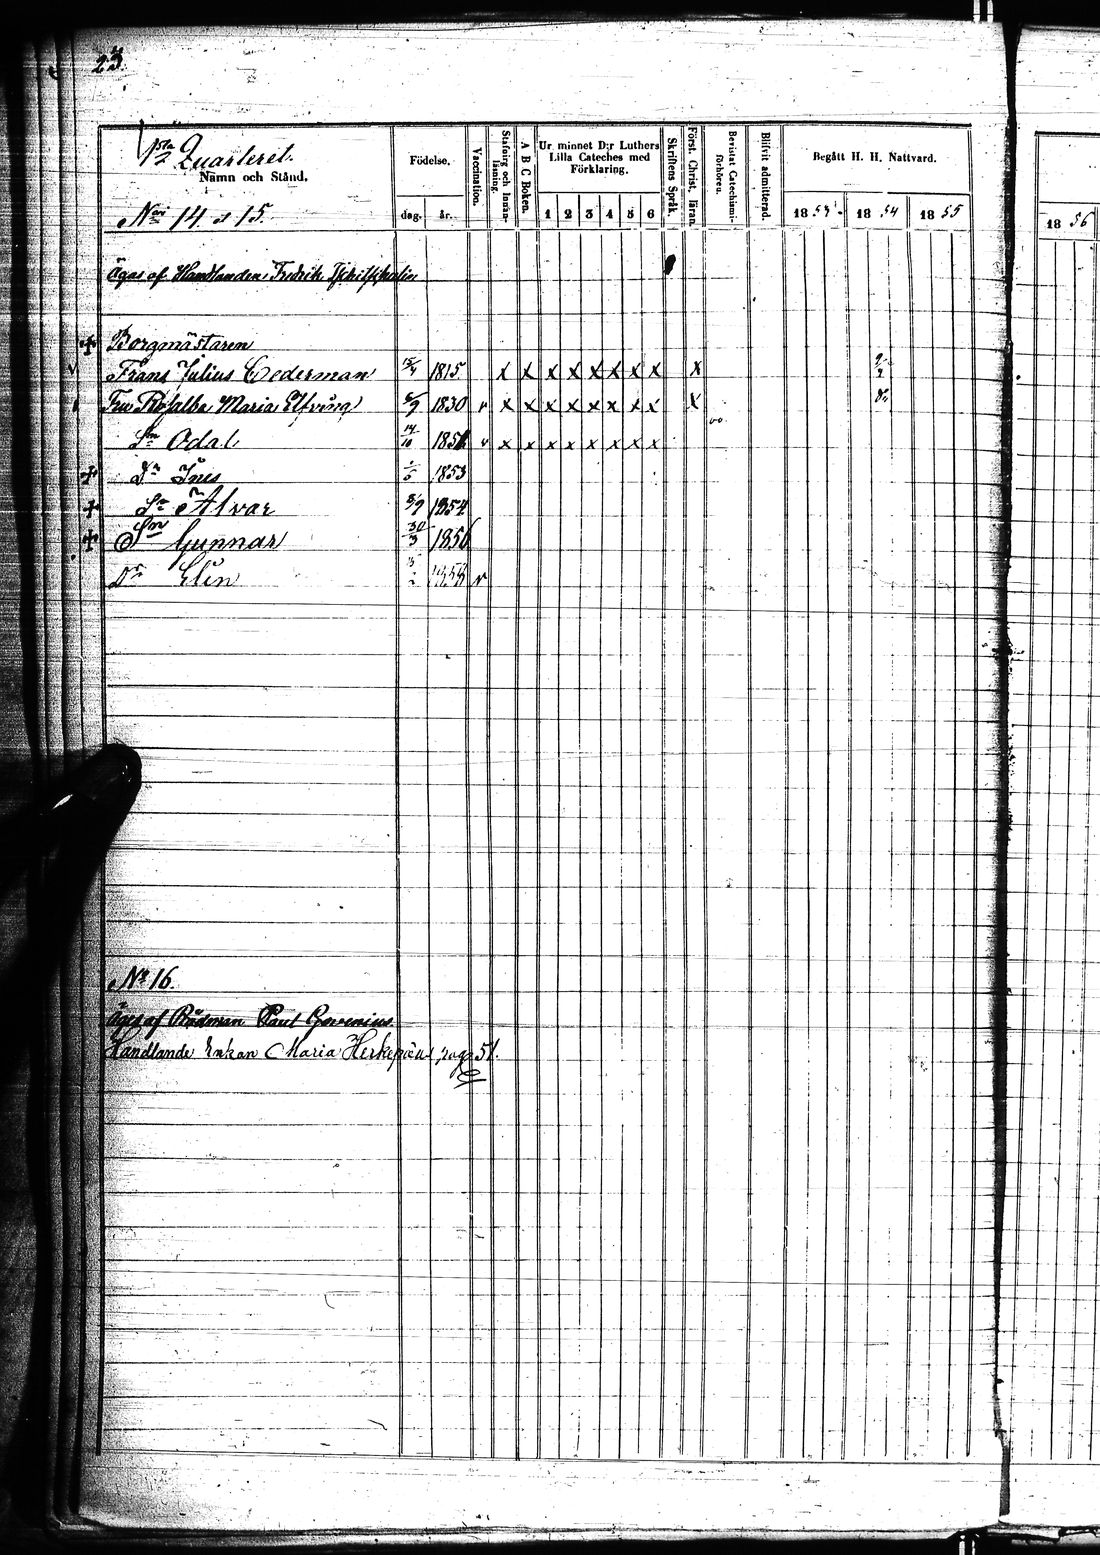 23.
1sta Quarteret.
Namn och Stånd.
Nris 14 & 15.
Födelse.
dag. år.
Vaccination.
Stafning och Innan-läsning.
A B C Boken.
Ur minnet D:r Luthers
Lilla Cateches med
Förklaring.
1 2 3 4 5 6
Skriftens Språk.
Först. Christ. läran.
Bevistat Catechismi-förhören.
Blifvit admitterad.
Begått H. H. Nattvard.
1853. 1854 1855
1856
Äges af Handlanden Fredrik
Borgmästaren
Frans Julius Cederman 15/4 1815 x x x x x x x x x
Fru Rosalba Maria Elfving 5/9 1830 v x x x x x x x x x
Sn Odal 14/10 v x x x x x x x x
Dr Ines 1853
Sn Alvar 8/9 1854
Sn Gunnar 30/3 1856
Dr Elin v
No 16.
Äges af Rådman Paul
Handlande Enkan Maria pag 51.